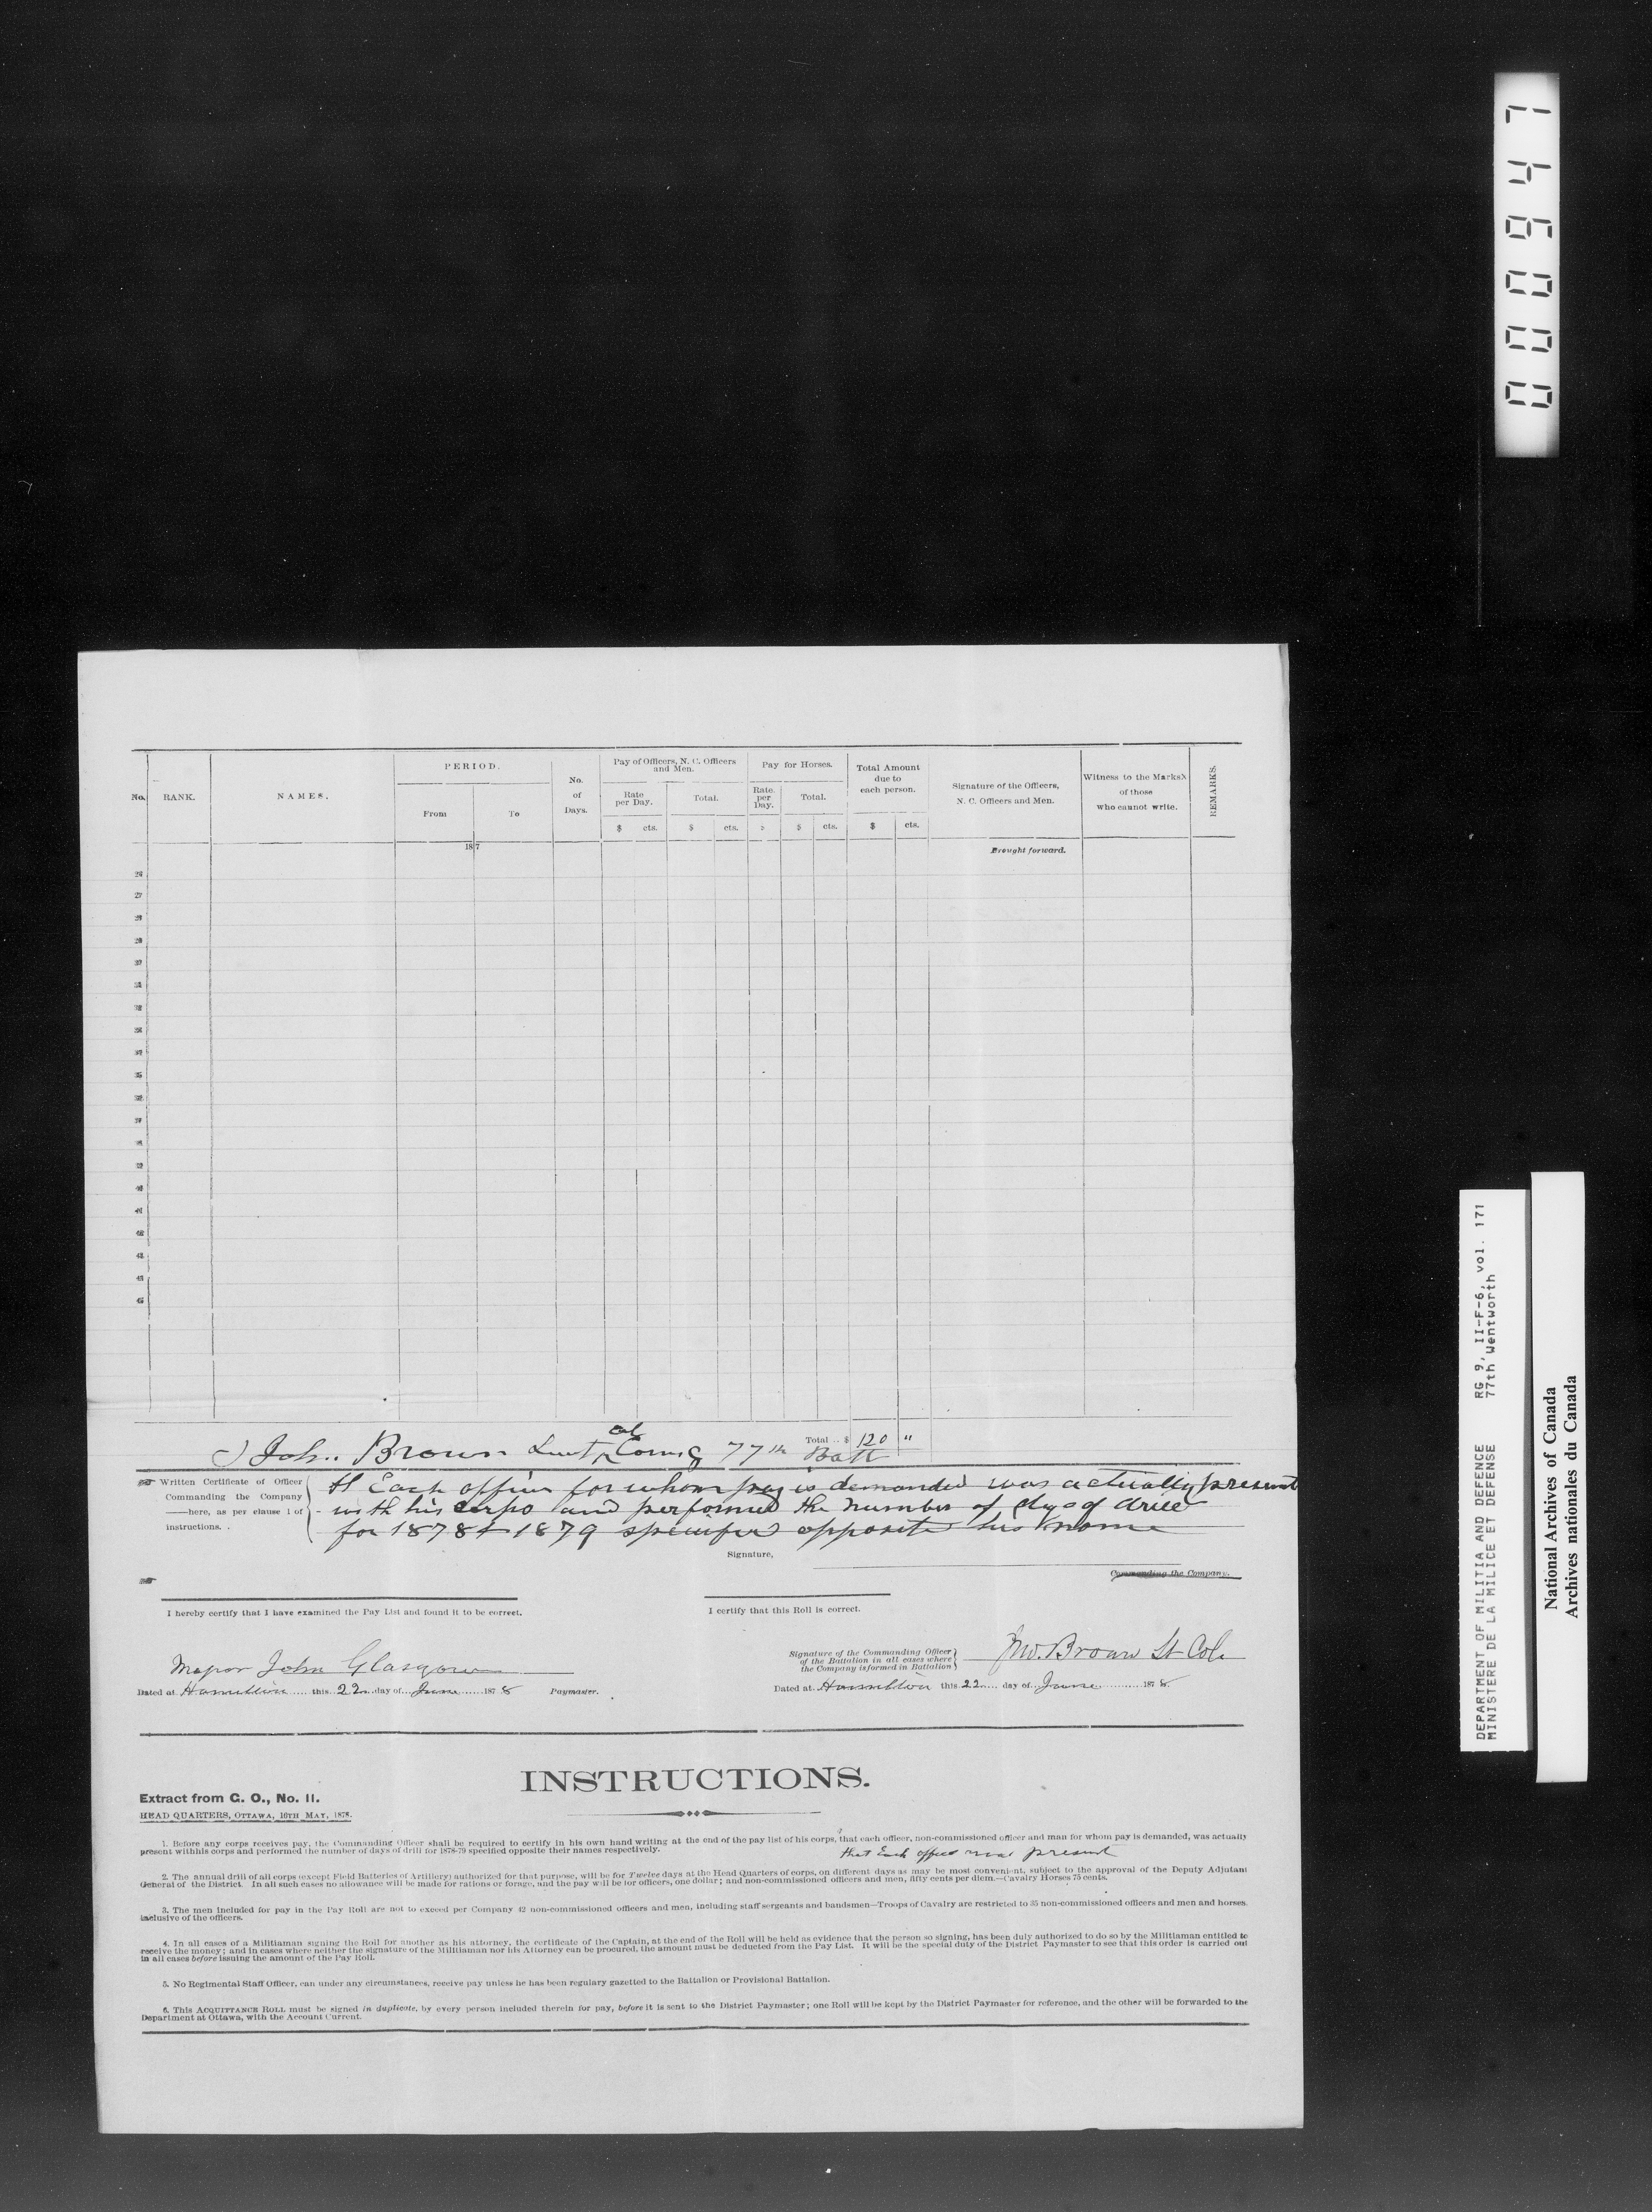 0000947
No. RANK. NAMES. PERIOD. From To No. of Days. Pay of Officers, N. C. Officers and Men. Rate per Day. Total. Pay for Horses. Rate. per Day. Total. Total Amount due to each person. Signature of the Officers, N. C. Officers and Men. Witness to the Marks X of those who cannot write. REMARKS.
$ cts. $ cts. $ $ cts. $ cts.
187
Brought forward.
26
27
28
29
30
31
32
33
34
35
36
37
38
39
40
41
42
43
44
45
Total .. $ 120 "
I John Brown Lieut Col Comg 77th Batt
Written Certificate of Officer
Commanding the Company
——here, as per clause 1 of
instructions.
tt Each officer for whom pay is demanded was actually present
with his corps and performed the number of dys of drill
for 1878 & 1879 specified opposite his name
Signature,
Commanding the Company.
I hereby certify that I have examined the Pay List and found it to be correct.
I certify that this Roll is correct.
Major John Glasgow
Dated at Hamilton this 22 day of June 1878 Paymaster.
Signature of the Commanding Officer
of the Battalion in all cases where
the Company is formed in Battalion
Jno. Brown Lt Col.
Dated at Hamilton this 22 day of June 1878
INSTRUCTIONS.
Extract from G. O., No. 11.
HEAD QUARTERS, OTTAWA, 16TH MAY, 1878.
1. Before any corps receives pay, the Commanding Officer shall be required to certify in his own hand writing at the end of the pay list of his corps, that each officer, non-commissioned officer and man for whom pay is demanded, was actually
present withhis corps and performed the number of days of drill for 1878-79 specified opposite their names respectively.
that Each officer was present
2. The annual drill of all corps (except Field Batteries of Artillery) authorized for that purpose, will be for Twelve days at the Head Quarters of corps, on different days as may be most convenient, subject to the approval of the Deputy Adjutant
General of the District. In all such cases no allowance will be made for rations or forage, and the pay will be for officers, one dollar; and non-commissioned officers and men, fifty cents per diem.—Cavalry Horses 75 cents.
3. The men included for pay in the Pay Roll are not to exceed per Company 42 non-commissioned officers and men, including staff sergeants and bandsmen—Troops of Cavalry are restricted to 35 non-commissioned officers and men and horses.
inclusive of the officers.
4. In all cases of a Militiaman signing the Roll for another as his attorney, the certificate of the Captain, at the end of the Roll will be held as evidence that the person so signing, has been duly authorized to do so by the Militiaman entitled to
receive the money; and in cases where neither the signature of the Militiaman nor his Attorney can be procured, the amount must be deducted from the Pay List. It will be the special duty of the District Paymaster to see that this order is carried out
in all cases before issuing the amount of the Pay Roll.
5. No Regimental Staff Officer, can under any circumstances, receive pay unless he has been regulary gazetted to the Battalion or Provisional Battalion.
6. This ACQUITTANCE ROLL must be signed in duplicate, by every person included therein for pay, before it is sent to the District Paymaster; one Roll will be kept by the District Paymaster for reference, and the other will be forwarded to the
Department at Ottawa, with the Account Current.
DEPARTMENT OF MILITIA AND DEFENCE RG 9, II-F-6, vol. 171
MINISTERE DE LA MILICE ET DEFENSE 77th Wentworth
National Archives of Canada
Archives nationales du Canada